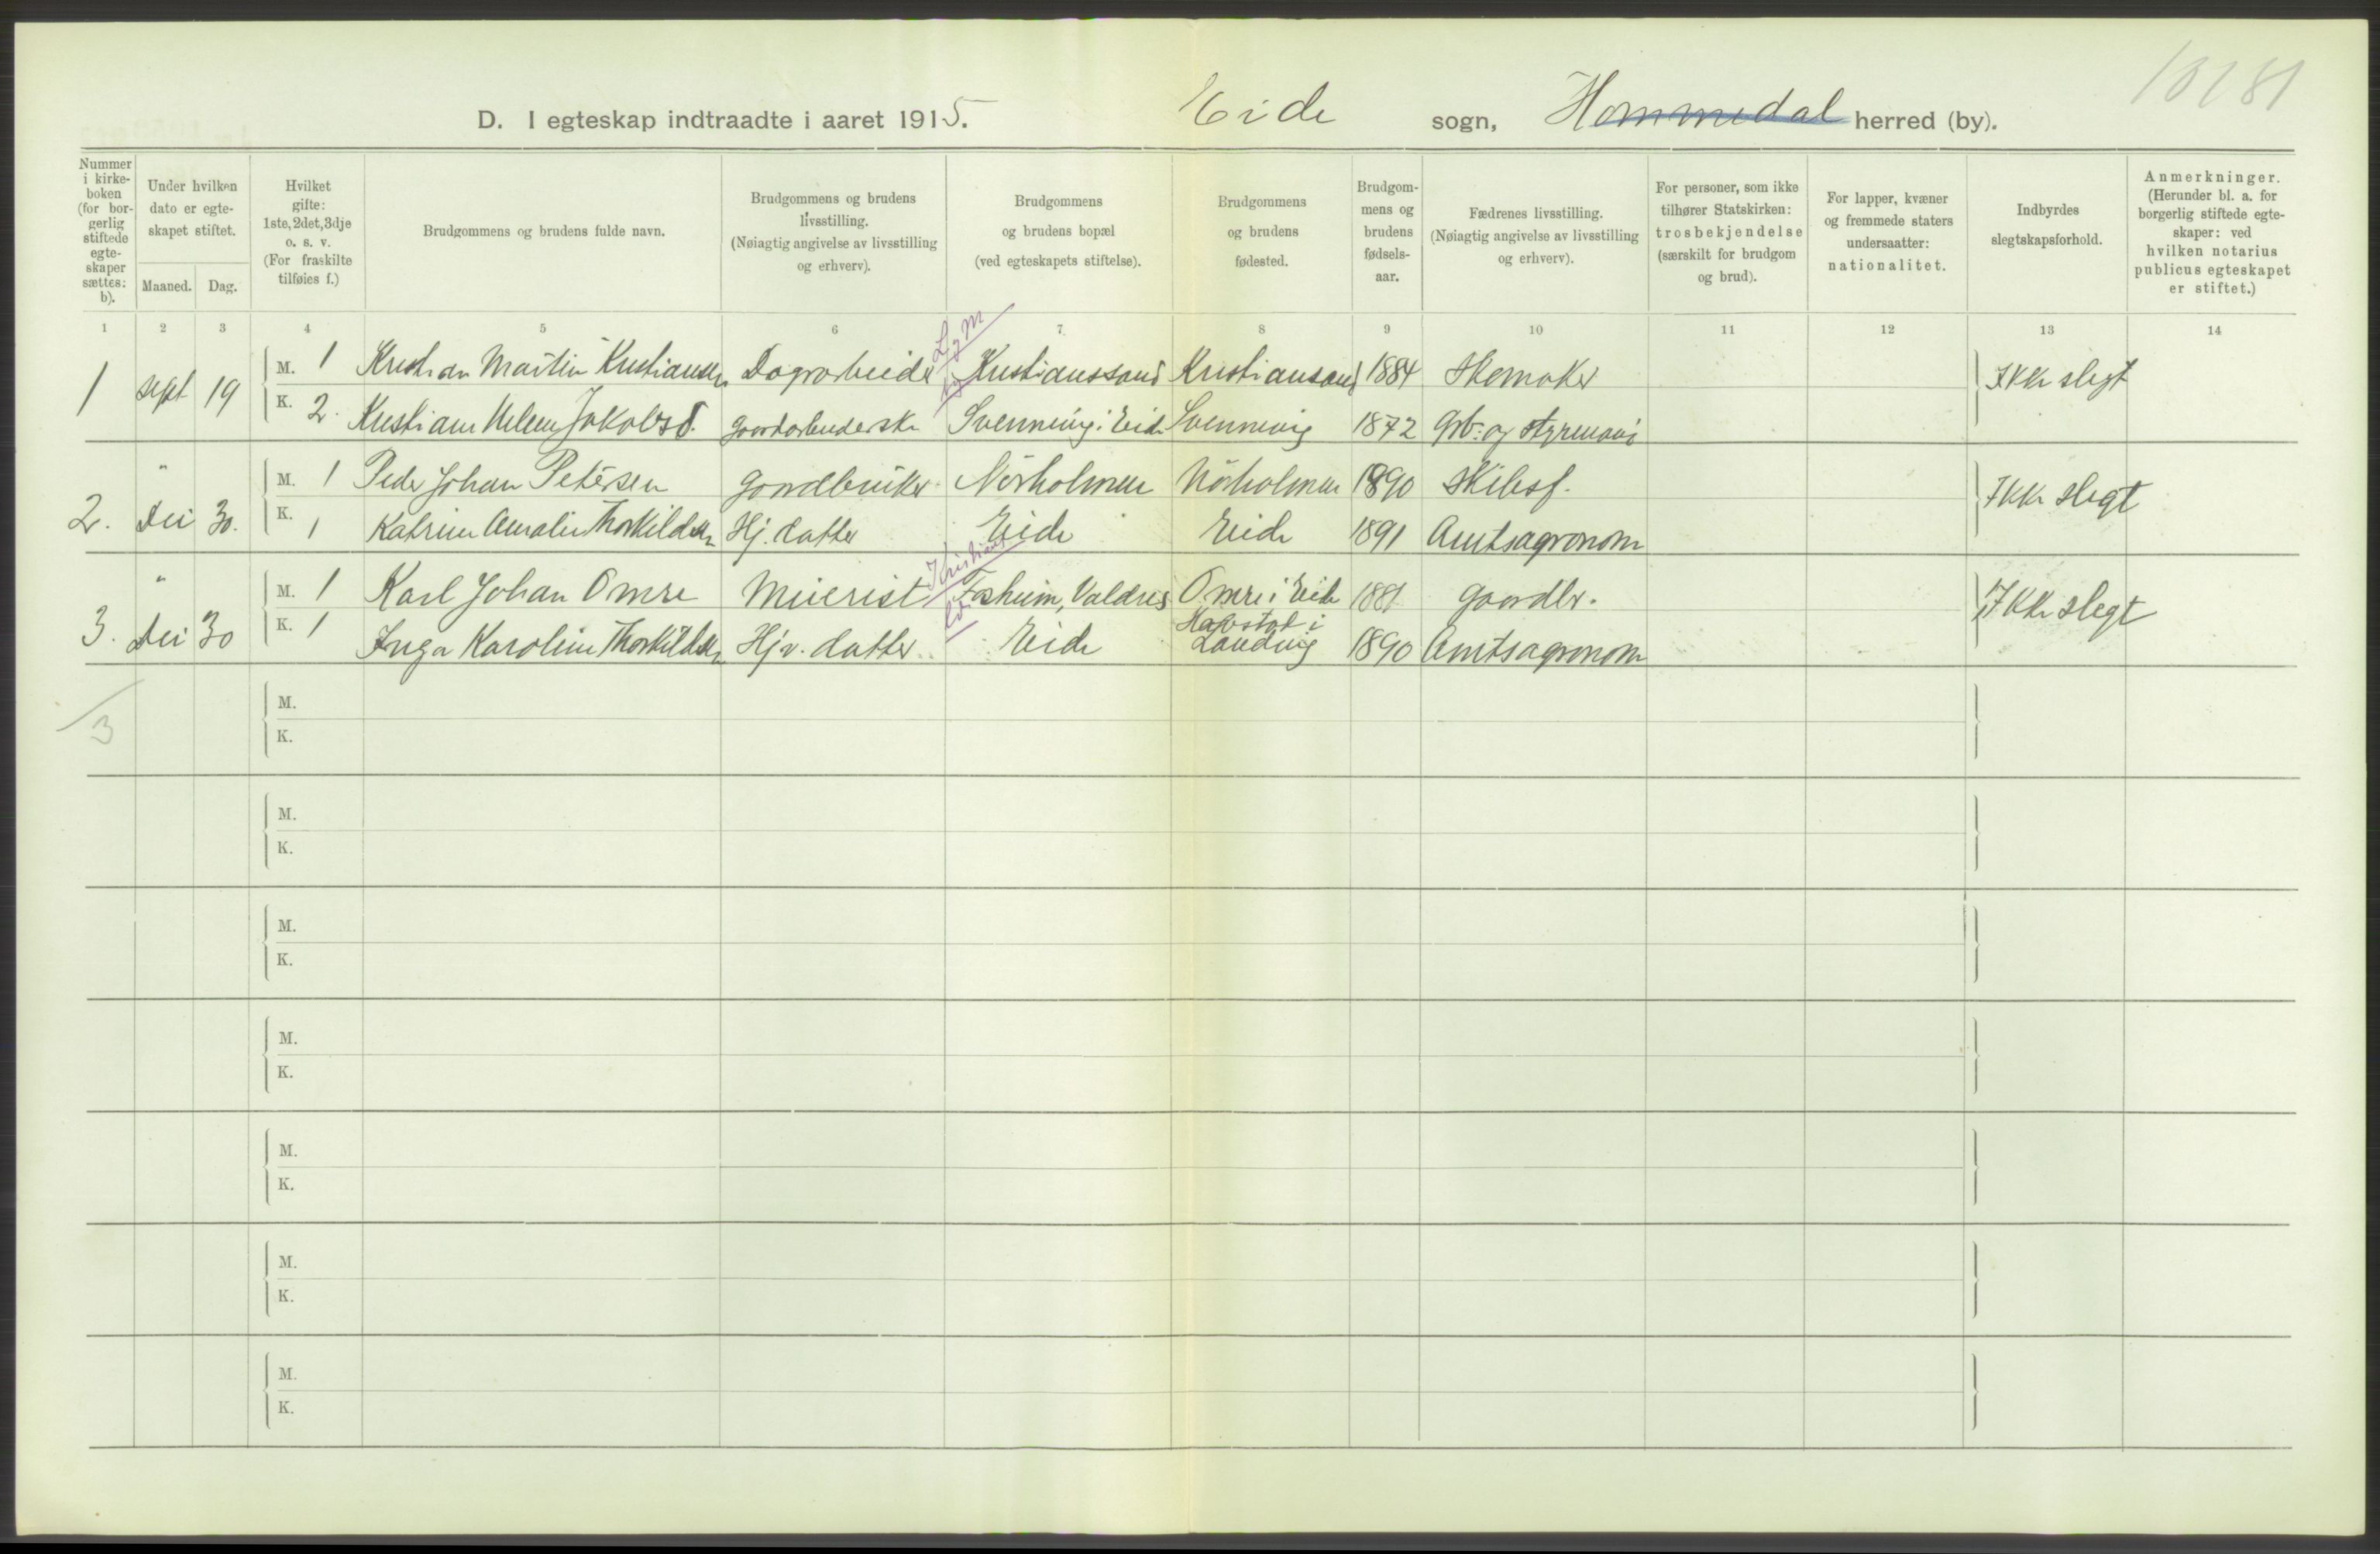 10181
D. I egteskap indtraadte i aaret 1915. Eide sogn, Hommedal herred (by).
Nummer i kirke-boken (for bor-gerlig stiftede egte-skaper sættes: b).
Under hvilken dato er egte-skapet stiftet.
Maaned. Dag.
Hvilket gifte: 1ste, 2det, 3dje o. s. v. (For fraskilte tilføies f.)
Brudgommens og brudens fulde navn.
Brudgommens og brudens livsstilling. (Nøiagtig angivelse av livsstilling og erhverv).
Brudgommens og brudens bopæl (ved egteskapets stiftelse).
Brudgommens og brudens fødested.
Brudgom-mens og brudens fødsels-aar.
Fædrenes livsstilling. (Nøiagtig angivelse av livsstilling og erhverv).
For personer, som ikke tilhører Statskirken: trosbekjendelse (særskilt for brudgom og brud).
For lapper, kvæner og fremmede staters undersaatter: nationalitet.
Indbyrdes slegtskapsforhold.
Anmerkninger. (Herunder bl. a. for borgerlig stiftede egte-skaper: ved hvilken notarius publicus egteskapet er stiftet.)
1 2 3 4 5 6 7 8 9 10 11 12 13 14
1 sept 19 M. 1 Kristian Martin Kristiansen Dagarbeider Kristianssand Kristiansand 1884 Skomaker Ikke slegt
K. 2. Kristiane Helene Jakobsd. Gaardarbeiderske Svennevig i Eide Svennevig 1872 Grb: og styrmand
2. " Dei 30. M. 1 Peder Johan Petersen Gaardbruker Nørholmen Nørholmen 1890 Skibsf. Ikke slegt
K. 1 Katrine Amalie Thorkildsen Hj. datter Eide Eide 1891 Amtsagronom
3. " Dei 30 M. 1 Karl Johan Omre Meierist Fosheim, Valdres Omre i Eide 1881 Gaardbr. Ikke slegt
K. 1 Inga Karoline Thorkildsen Hjv. datter Eide Havstad i Landvig 1890 Amtsagronom
3
M.
K.
M.
K.
M.
K.
M.
K.
M.
K.
M.
K.
M.
K.